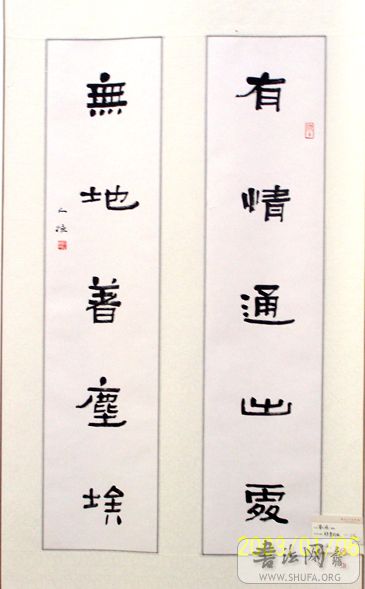 有情通出處
無地著塵埃
书法网
WWW.SHUFA.ORG